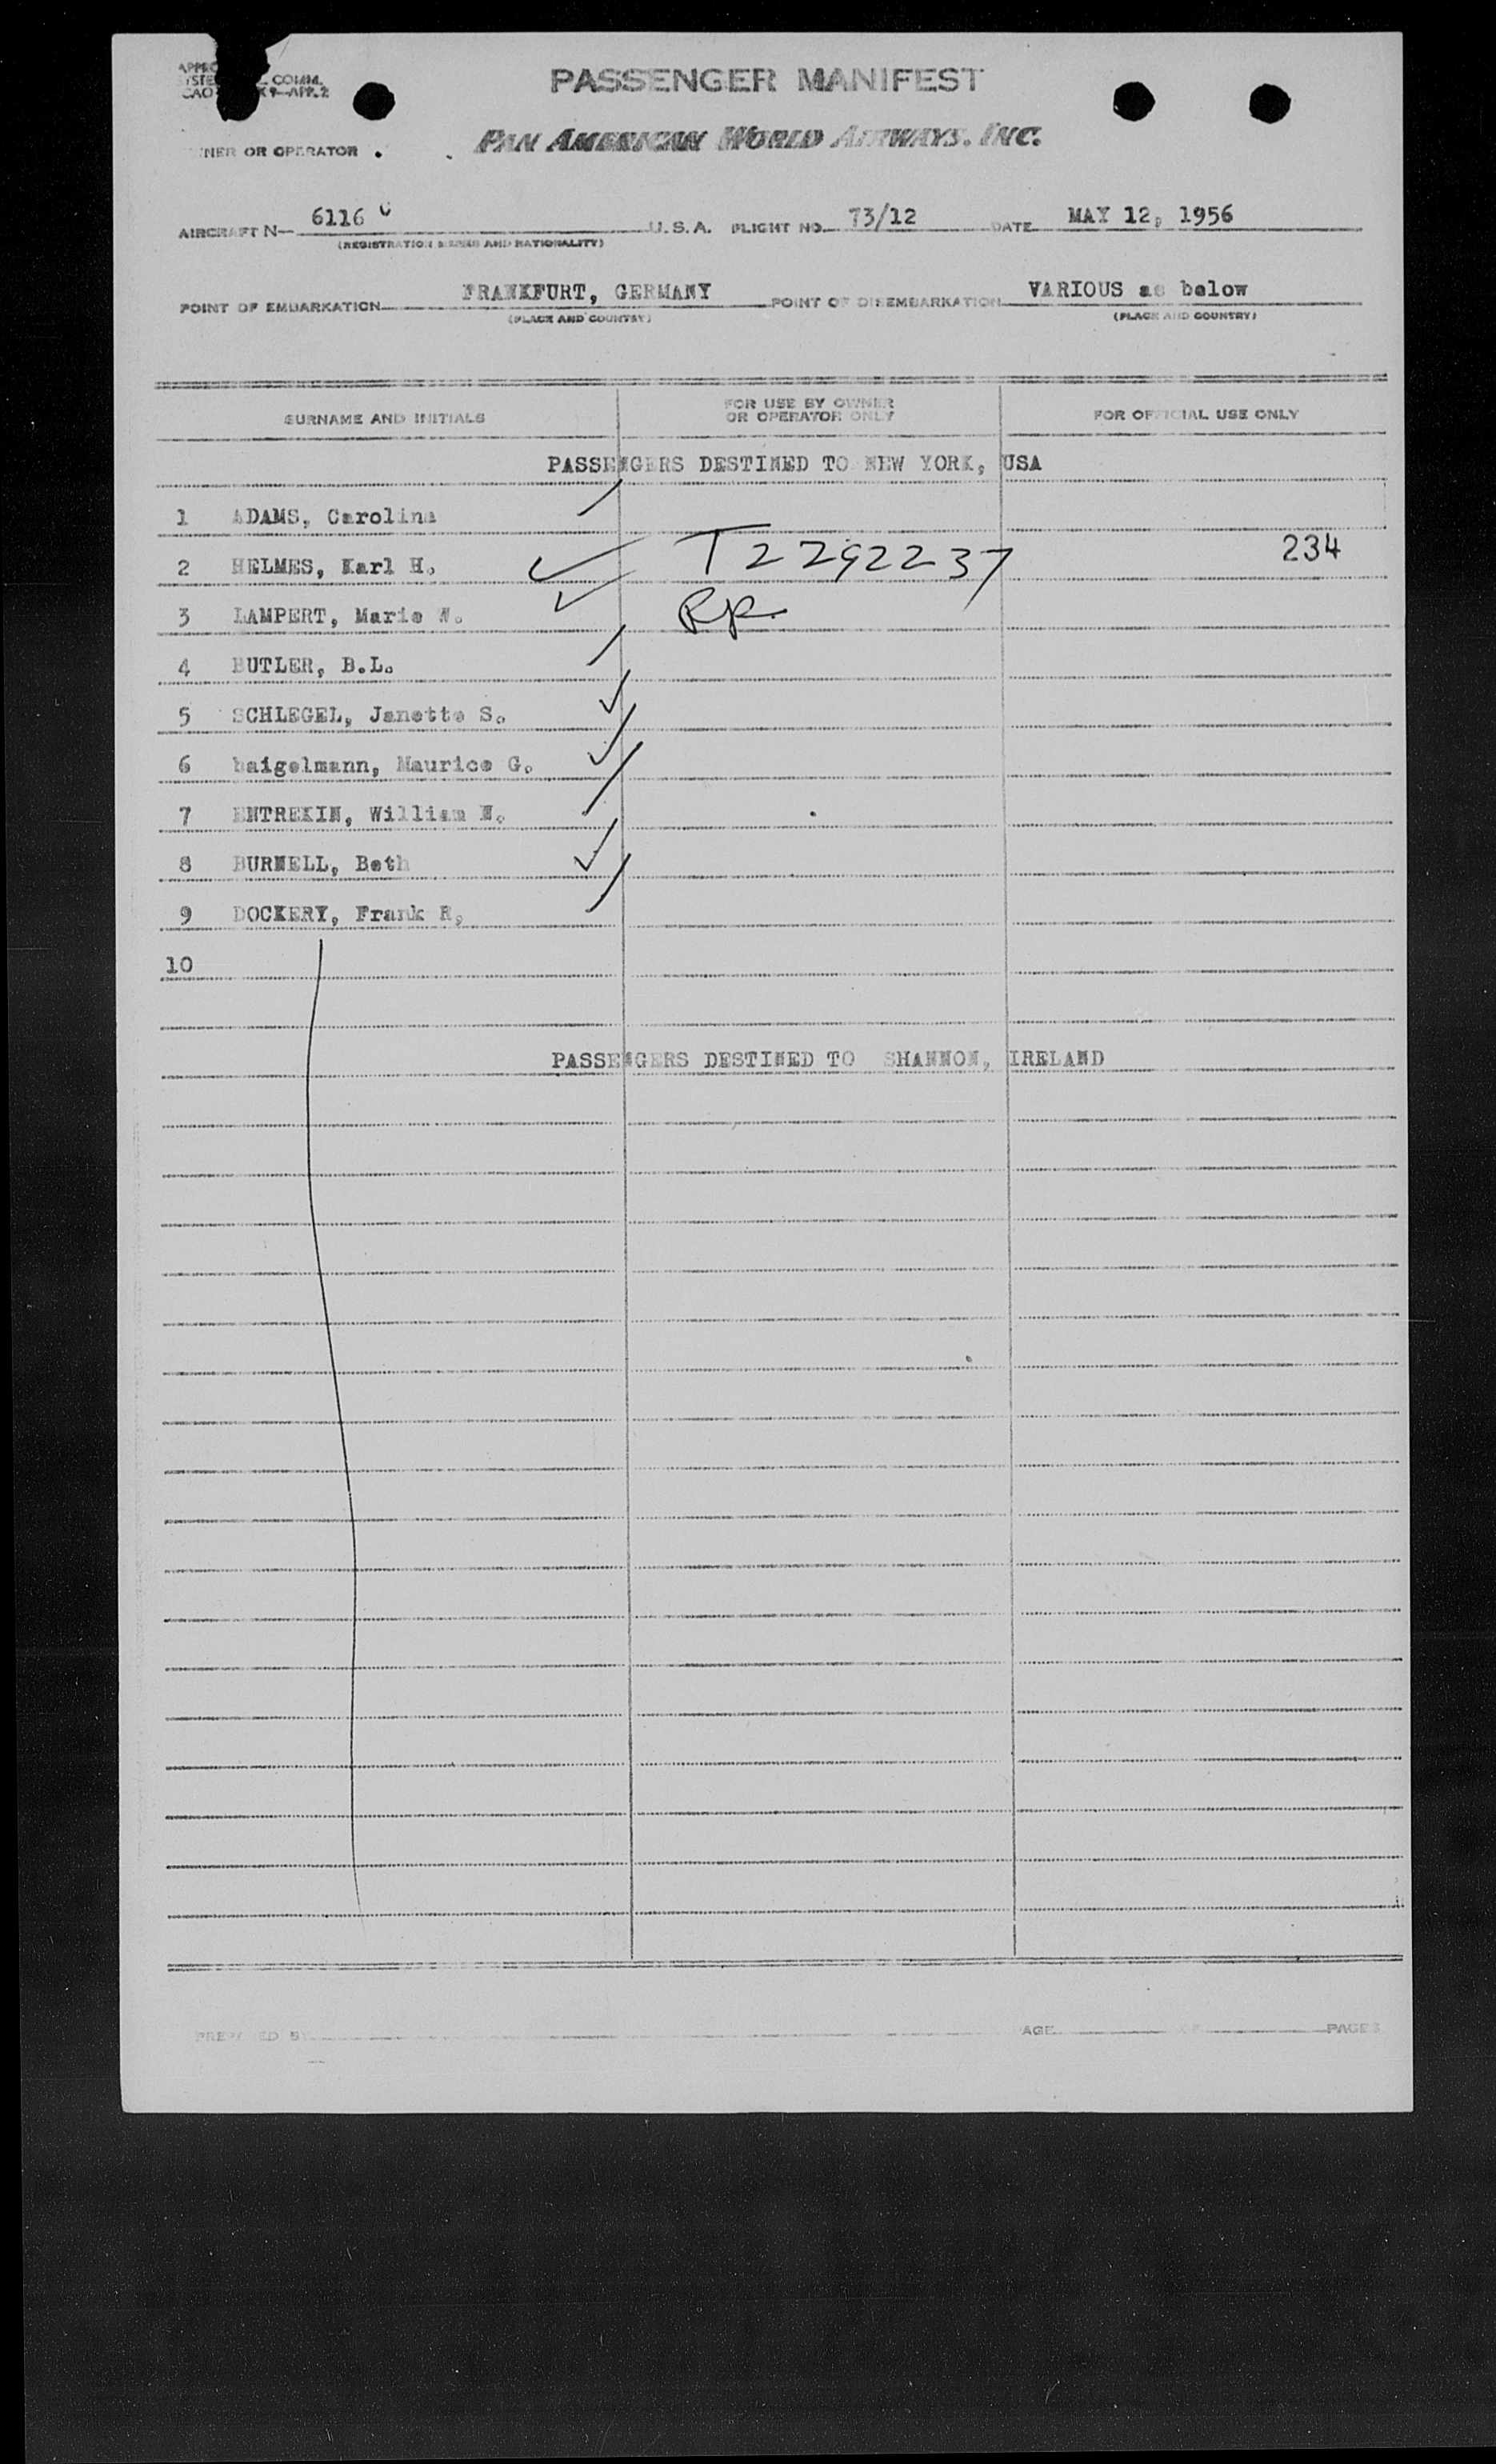 COMM.
APP. 2
PASSENGER MANIFEST
PAN AMERICAN WORLD AIRWAYS, INC.
OR OPERATOR
AIRCRAFT N— 6116 U.S.A. FLIGHT NO. 73/12 DATE MAY 12, 1956
(REGISTRATION MARKS AND NATIONALITY)
POINT OF EMBARKATION FRANKFURT, GERMANY POINT OF DISEMBARKATION VARIOUS as below
(PLACE AND COUNTRY) (PLACE AND COUNTRY)
SURNAME AND INITIALS FOR USE BY OWNER OR OPERATOR ONLY FOR OFFICIAL USE ONLY
PASSENGERS DESTINED TO NEW YORK, USA
1 ADAMS, Carolina
2 HELMES, Karl H. T2292237 234
3 LAMPERT, Marie W. RP.
4 BUTLER, B.L.
5 SCHLEGEL, Janette S.
6 baigelmann, Maurice G.
7 ENTREKIN, William N.
8 BURNELL, Beth
9 DOCKERY, Frank R,
10
PASSENGERS DESTINED TO SHANNON, IRELAND
PAGES